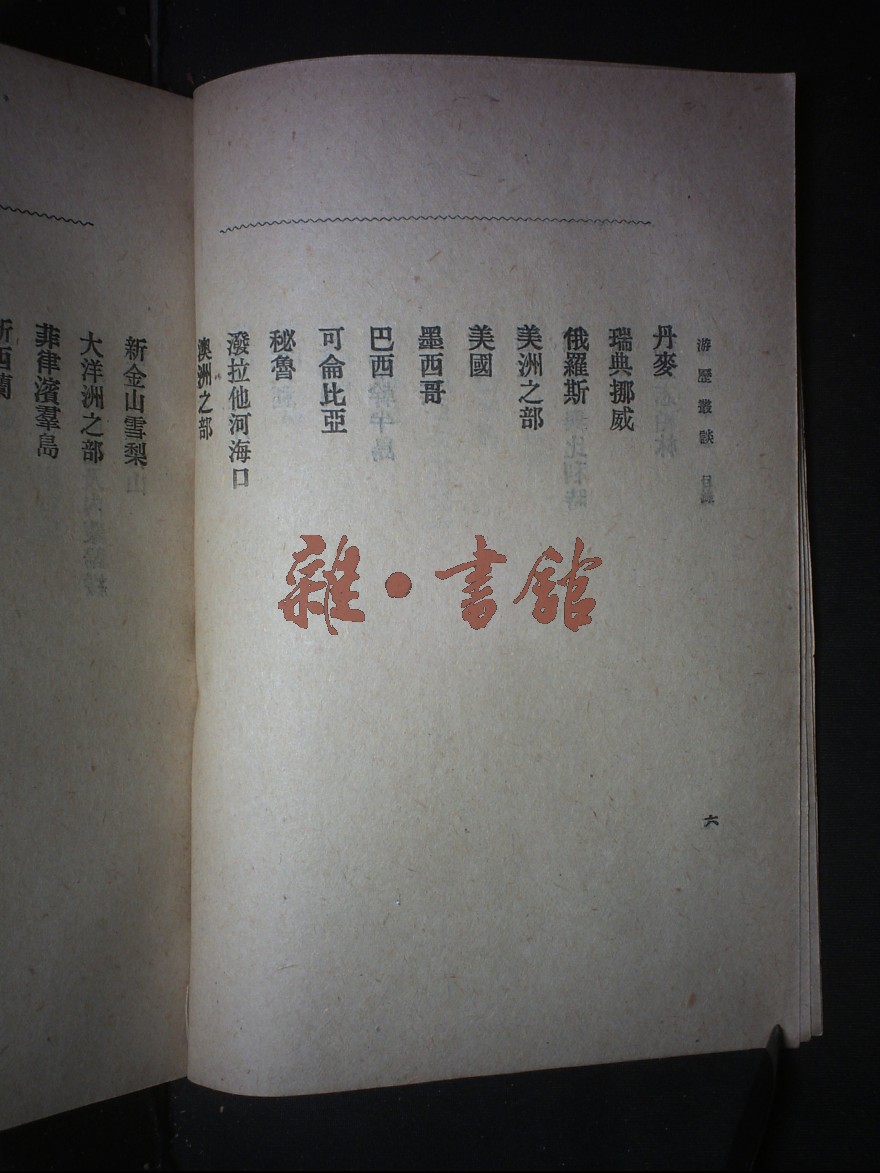 游歷叢談 目錄
六
丹麥
瑞典挪威
俄羅斯
美洲之部
美國
墨西哥
巴西
可侖比亞
秘魯
潑拉他河海口
澳洲之部
新金山雪梨
大洋洲之部
菲律濱羣島
新西蘭
雜·書館